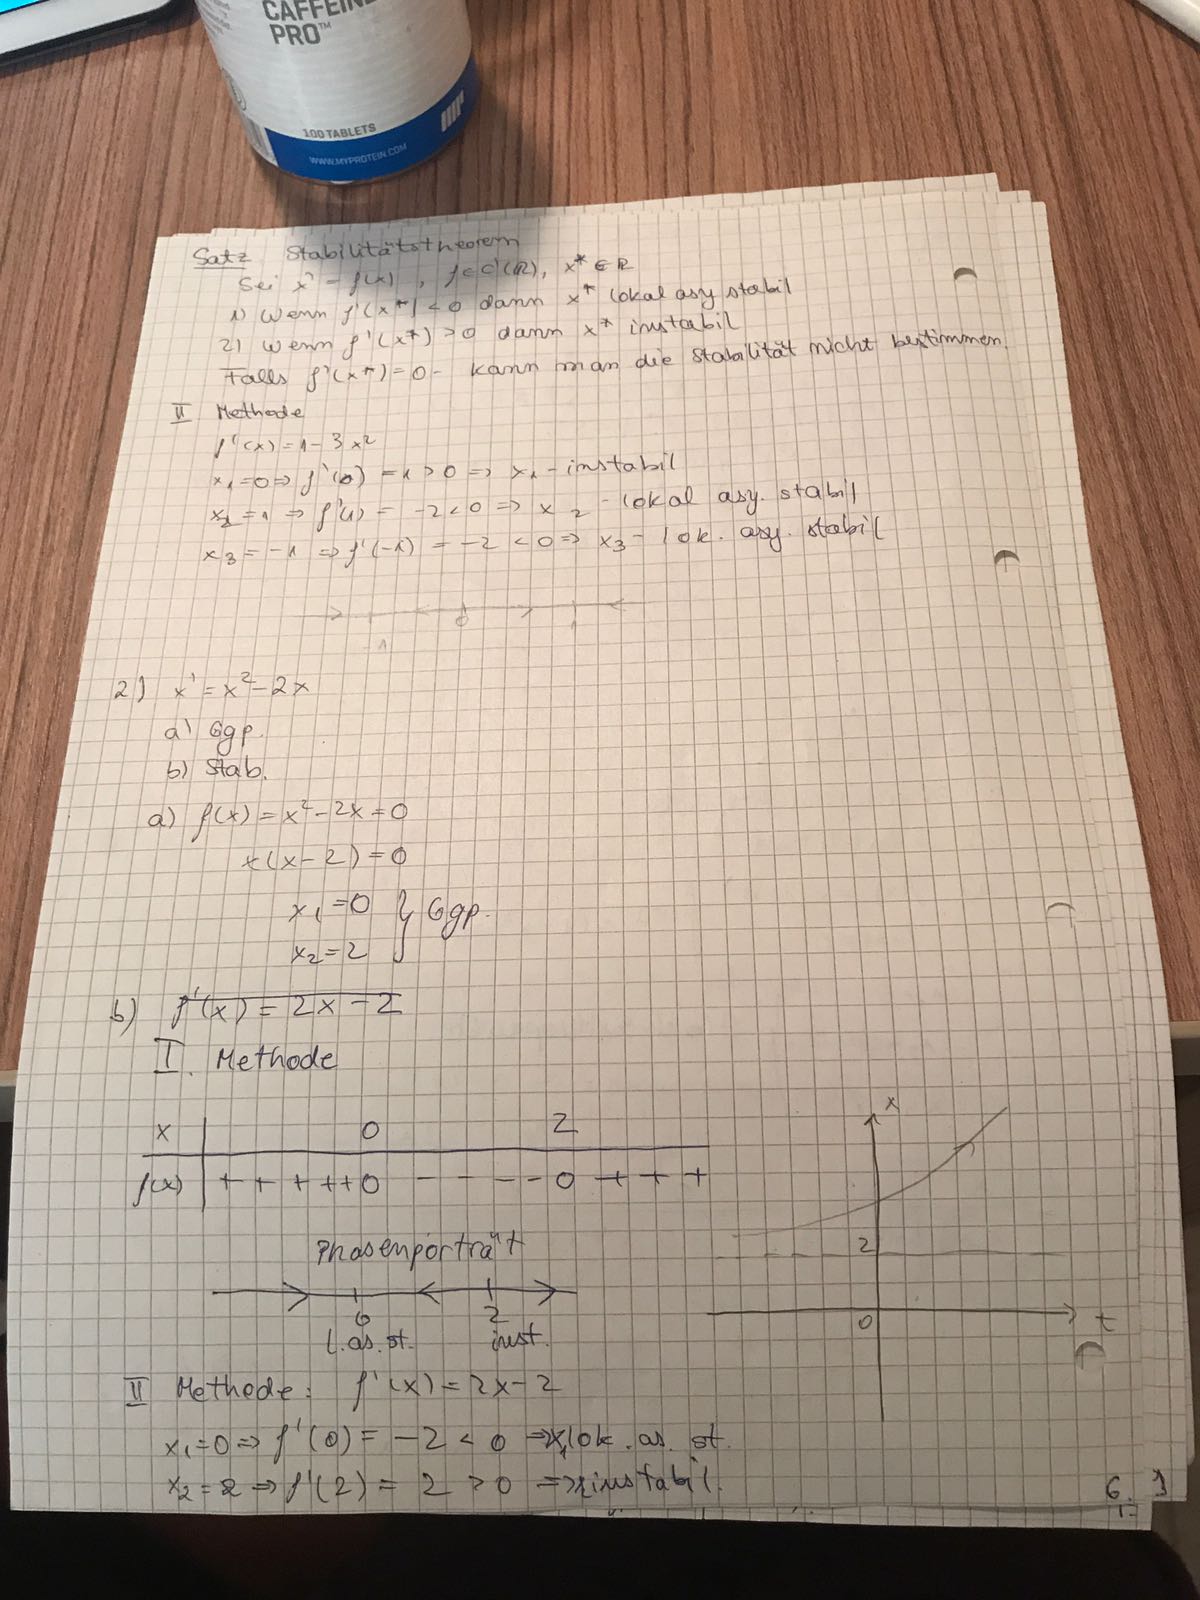 CAFFEINE
PRO™
100 TABLETS
WWW.MYPROTEIN.COM
Satz Stabilitätstheorem
Sei x' = f(x), f∈C¹(R), x* ∈ R
1) Wenn f'(x*) < 0 dann x* lokal asy stabil
2) Wenn f'(x*) > 0 dann x* instabil
Falls f'(x*) = 0 - kann man die Stabilität nicht bestimmen.
II Methode
f'(x) = 1 - 3x²
x₁ = 0 ⇒ f'(0) = 1 > 0 ⇒ x₁ - instabil
x₂ = 1 ⇒ f'(1) = -2 < 0 ⇒ x₂ - lokal asy. stabil
x₃ = -1 ⇒ f'(-1) = -2 < 0 ⇒ x₃ - lok. asy. stabil
-1 0 1
2) x' = x² - 2x
a) Ggp.
b) Stab.
a) f(x) = x² - 2x = 0
x(x - 2) = 0
x₁ = 0 } Ggp.
x₂ = 2
b) f'(x) = 2x - 2
I. Methode
x 0 2
f(x) + + + + + 0 - - - - 0 + + +
x
2
0
t
Phasenporträt
0 2
l. as. st. inst.
II Methode: f'(x) = 2x - 2
x₁ = 0 ⇒ f'(0) = -2 < 0 ⇒ x₁ lok. as. st.
x₂ = 2 ⇒ f'(2) = 2 > 0 ⇒ x₂ instabil.